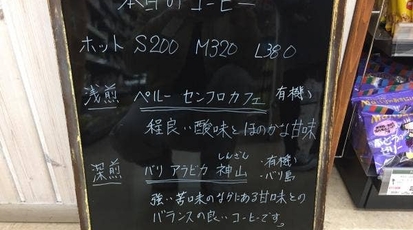 本日のコーヒー
ホット S200 M320 L380
浅煎 ペルー センフロカフェ 有機
程良い酸味とほのかな甘味
しんざん
深煎 バリ アラビカ 神山 ・有機 ・バリ島
強い苦味のなかにある甘味との
バランスの良いコーヒーです。